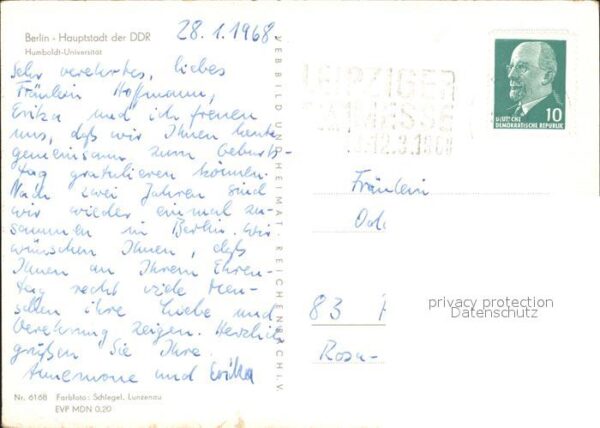 Berlin - Hauptstadt der DDR
Humboldt-Universität
28.1.1968
Sehr verehrtes, liebes
Fräulein Hoffmann,
Erika und ich freuen
uns, daß wir Ihnen heute
gemeinsam zum Geburts-
tag gratulieren können.
Nach zwei Jahren sind
wir wieder einmal zu-
sammen in Berlin. Wir
wünschen Ihnen, daß
Ihnen an Ihrem Ehren-
tag recht viele Men-
schen ihre Liebe und
Verehrung zeigen. Herzlich
grüßen Sie Ihre
Annemone und Erika
Nr. 6168 Farbfoto: Schlegel, Lunzenau
EVP MDN 0.20
VEB BILD UND HEIMAT · REICHENBACH i. V.
LEIPZIGER
MESSE
12.3.1968
10
DEUTSCHE
DEMOKRATISCHE REPUBLIK
Fräulein
83
Rosa-
privacy protection
Datenschutz